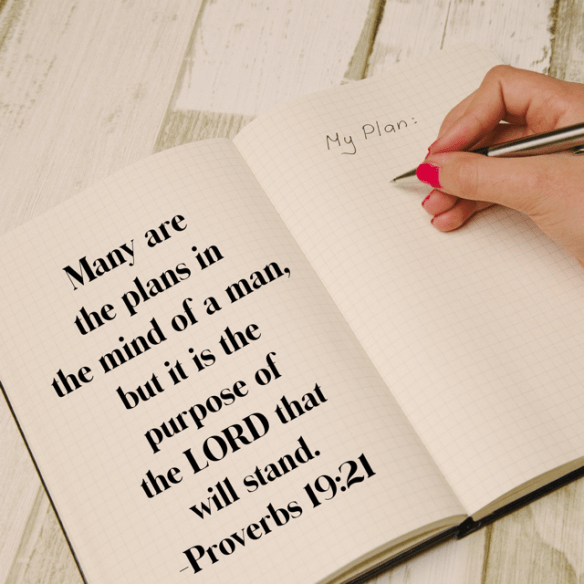 Many are
the plans in
the mind of a man,
but it is the
purpose of
the LORD that
will stand.
-Proverbs 19:21
My Plan: